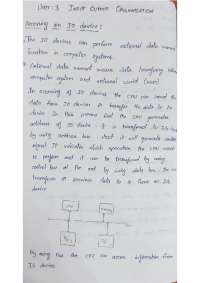 UNIT-3 INPUT OUTPUT ORGANIZATION
Accessing an IO device:
The IO devices can perform external data
function in computer systems.
External data means data transfering b/w
computer system and external world (user).
In accessing of IO device the CPU can
data from IO device or transfer the data to IO
device. In this process first the CPU generate
address of IO device it is transferred to
by using address bus. Next it will generate
signal. It indicates which operation the CPU want
to perform and it can be transferred by using
control bus at
transfered or receives data to or from an I/O
device
CPU
By using bus the CPU can access information from
IO device.